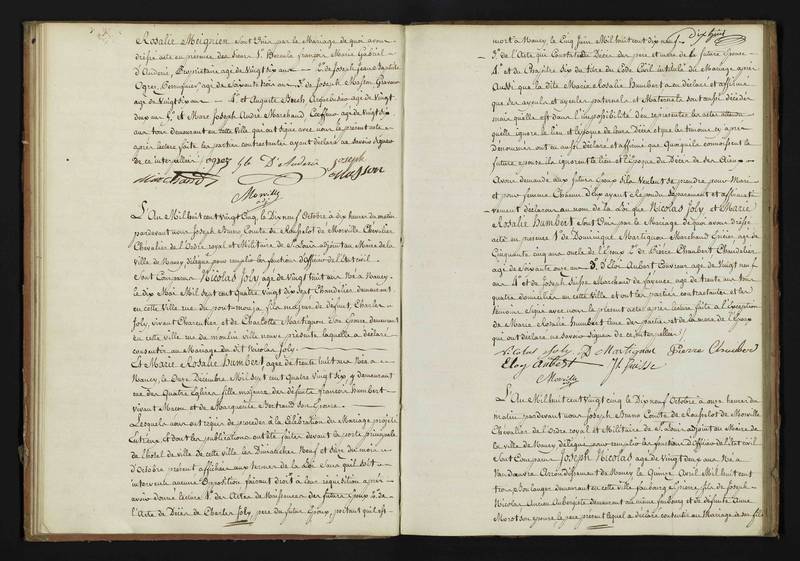 Rosalie Meignien sont Unis par le Mariage de quoi avons
dressé acte en présence des sieurs 1° François Marie Gabriel
Propriétaire agé de Vingt six ans 2° de Joseph Jean Baptiste
Ogrez agé de Soixante trois ans 3° de Joseph Masson Graveur
agé de Vingt six ans 4° et Auguste
ans et Marc Joseph André Marchand Coiffeur agé de Vingt six
ans tous demeurant en cette Ville qui ont signé avec nous le présent acte
après lecture faite les parties contractantes ayant déclaré ne savoir signer
de ce interpellés Ogrez Joseph
Marchand Masson
Morville
L'An Mil huit cent Vingt Cinq, le Dix neuf Octobre à dix heures du matin
pardevant nous Joseph Bruno Comte de Morville Chevalier
Chevalier de l'Ordre royal et Militaire de St Louis adjoint au Maire de la
Ville de Nancy, délégué pour remplir les fonctions d'Officier de l'Etat civil
Sont Comparus Nicolas Joly agé de Vingt huit ans Né à Nancy
le dix Mai Mil Sept cent Quatre Vingt dix Sept Chandelier demeurant
en cette Ville rue du pont mouja fils majeur de défunt Charles
Joly, vivant Charcutier et de Charlotte Martignon son Epouse demeurant
en cette Ville rue du moulin ville neuve présente laquelle a déclaré
consentir au Mariage du dit Nicolas Joly
Et Marie Rosalie Humbert agée de trente huit ans Née à
Nancy, le Décembre Mil Sept cent Quatre Vingt Six y demeurant
rue des Quatre Eglises fille majeure des défunts françois Humbert
vivant Maçon et de Marguerite Bertrand son Epouse
Lesquels nous ont requis de procéder à la Célébration du Mariage projeté
entr'eux et dont les publications ont été faites devant la porte principale
de l'hôtel de ville de cette ville les Dimanches Neuf et Seize du mois
d'Octobre présent affichées aux termes de la Loi Sans qu'il soit
intervenu aucune Opposition faisant droit à leur réquisition après
avoir donné lecture 1° des Actes de Naissances des futurs Epoux 2° de
l'Acte de Décès de Charles Joly, père du futur Epoux, portant qu'il est
Dix huit
mort à Nancy, le Cinq Juin Mil huit cent dix neuf
3° de l'Acte qui Constate le Décès des père et mère de la future Epouse
4° et du Chapitre Six du titre du Code Civil intitulé du Mariage après
Aussi que la dite Marie Rosalie Humbert a eu déclaré et affirmé
que ses ayeuls et ayeules paternels et Maternels sont aussi décédés
mais qu'elle est dans l'impossibilité d'en représenter les actes attendu
qu'elle ignore le lieu et l'époque de leurs Décès et que les témoins cy après
Dénommés ont eu aussi déclaré et affirmé que quoiqu'ils connaissent la
future epouse ils ignorent le lieu et l'Epoque du Décès de ses Aïeux
Avons demandé aux futurs Epoux s'ils veulent se prendre pour Mari
et pour femme Chacun d'Eux ayant répondu Séparement et affirmati
vement déclarons au nom de la Loi que Nicolas Joly et Marie
Rosalie Humbert sont Unis par le Mariage de quoi avons dressé
acte en présence 1° de Dominique Martignon Marchand Epicier agé de
Cinquante cinq ans oncle de l'Epoux 2° de Pierre Chambert Chandelier
agé de Soixante onze ans 3° d'Eloi Aubert Couvreur agé de Vingt neuf
ans 4° et de Joseph Suisse Marchand de fayence agé de trente six ans
quatre domiciliés en cette Ville et ont les parties contractantes et les
témoins signé avec nous le présent acte après lecture faite à l'Exception
de Marie Rosalie Humbert l'une des parties et de la mère de l'Epoux
qui ont déclaré ne savoir signer de ce interpellées
Nicolas Joly D Martignon Pierre
Eloy Aubert J Suisse
Morville
L'An Mil huit cent vingt cinq le Dix neuf Octobre à onze heures du
matin pardevant nous Joseph Bruno Comte de Morville
Chevalier de l'Ordre royal et Militaire de St Louis adjoint au Maire de
la ville de Nancy délégué pour remplir les fonctions d'Officier de l'Etat civil
Sont Comparus Joseph Nicolas agé de Vingt deux ans Né à
Vandœuvre Arrondissement de Nancy le Quinze Avril Mil huit cent
trois Boulanger demeurant en cette Ville faubourg St Pierre fils de Joseph
Nicolas Ancien Aubergiste demeurant au même faubourg et de défunte Anne
Morot son épouse, le père présent lequel a déclaré consentir au Mariage de son fils